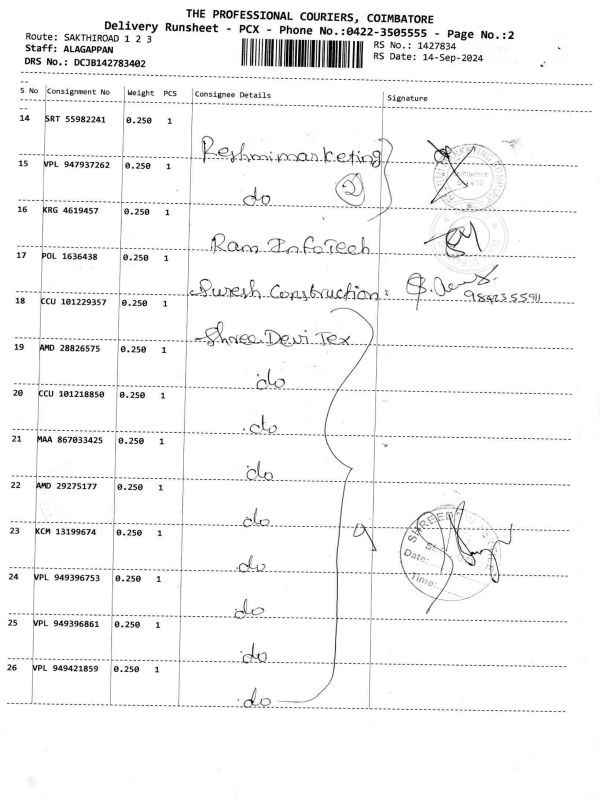 THE PROFESSIONAL COURIERS, COIMBATORE
Delivery Runsheet - PCX - Phone No.:0422-3505555 - Page No.:2
Route: SAKTHIROAD 1 2 3
RS No.: 1427834
Staff: ALAGAPPAN
RS Date: 14-Sep-2024
DRS No.: DCJB142783402
S No Consignment No Weight PCS Consignee Details Signature
14 SRT 55982241 0.250 1
Reshmi marketing
15 VPL 947937262 0.250 1
do 2
16 KRG 4619457 0.250 1
Ram InfoTech
17 POL 1636438 0.250 1
Suresh Construction:
9842355911
18 CCU 101229357 0.250 1
Shree Devi Tex
19 AMD 28826575 0.250 1
do
20 CCU 101218850 0.250 1
do
21 MAA 867033425 0.250 1
do
22 AMD 29275177 0.250 1
do
23 KCM 13199674 0.250 1
do
9
Date:
Time:
24 VPL 949396753 0.250 1
do
25 VPL 949396861 0.250 1
do
26 VPL 949421859 0.250 1
do